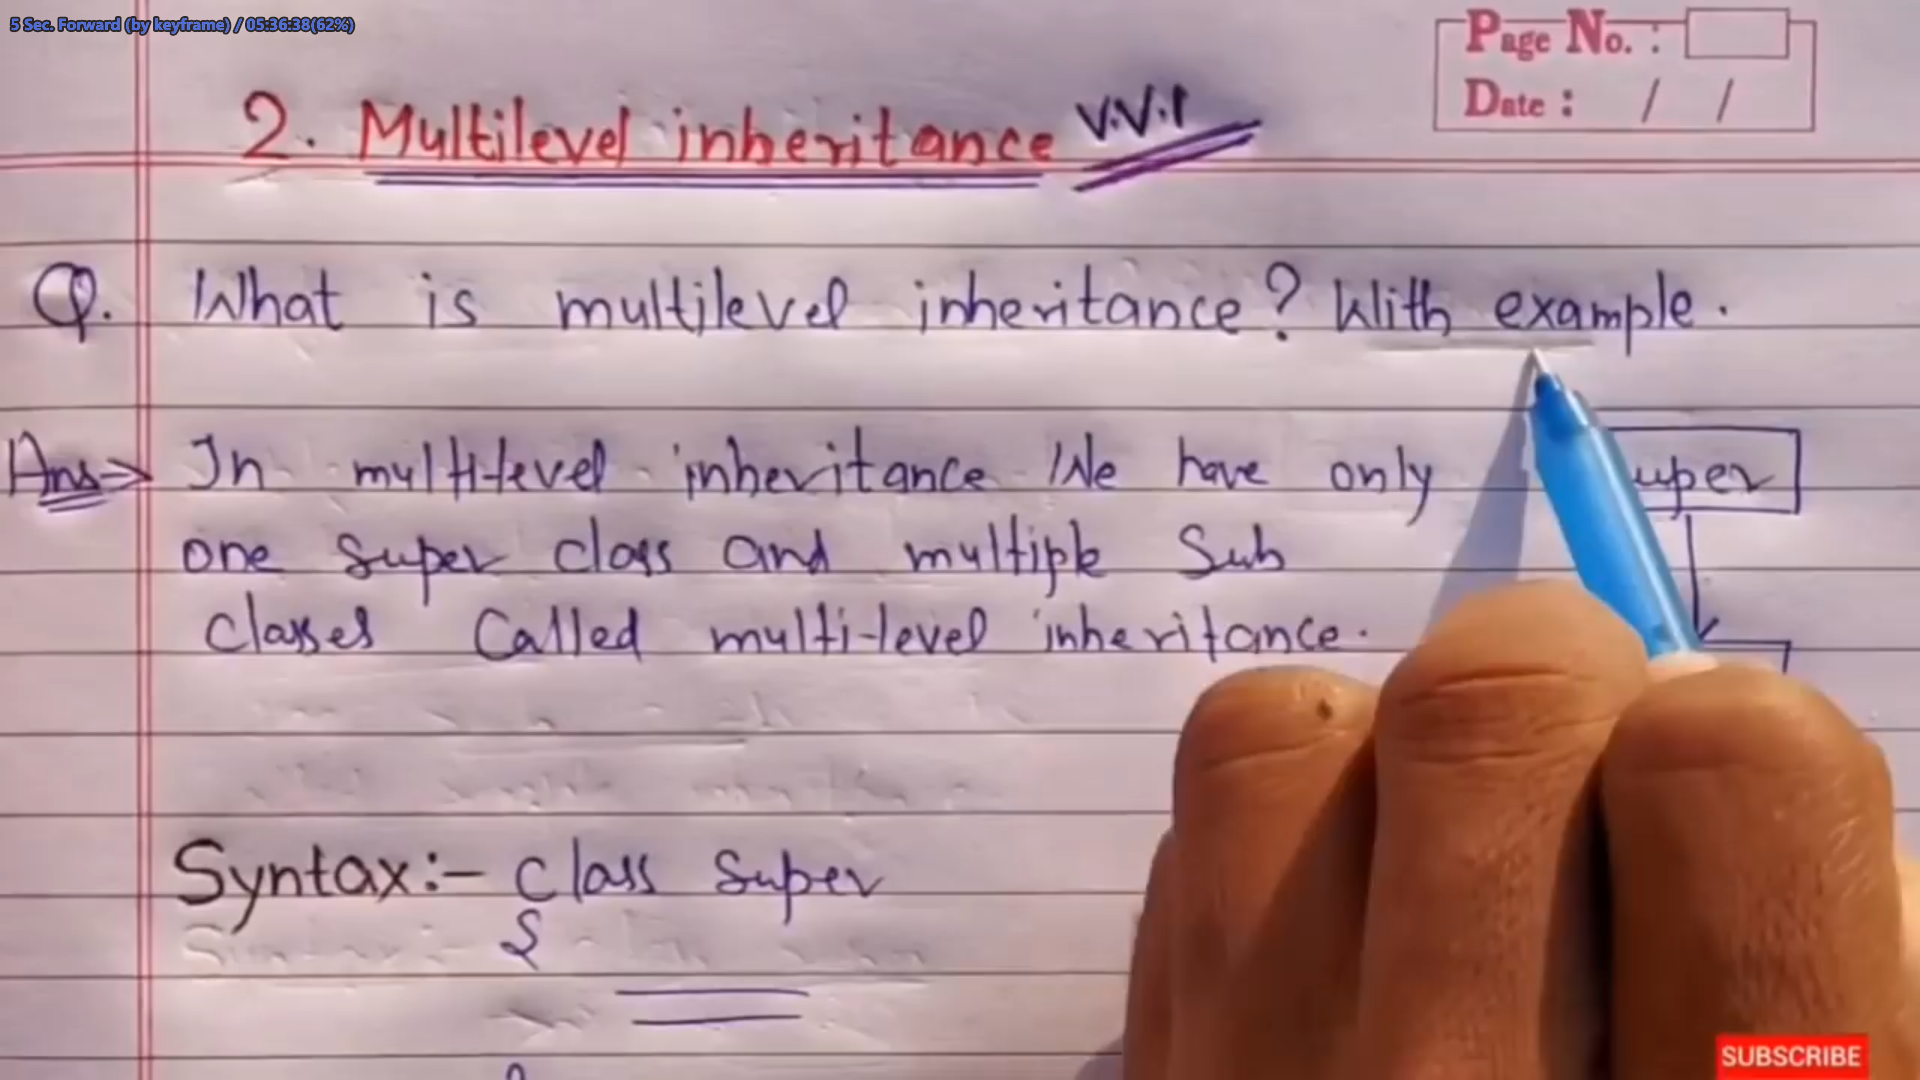 5 Sec. Forward (by keyframe) / 05:36:38(62%)
Page No. :
Date : / /
2. Multilevel inheritance V.V.I
Q. What is multilevel inheritance? With example.
Ans=> In multi-level inheritance We have only
uper
one super class and multiple Sub
classes Called multi-level inheritance.
Syntax:- class Super
{
SUBSCRIBE